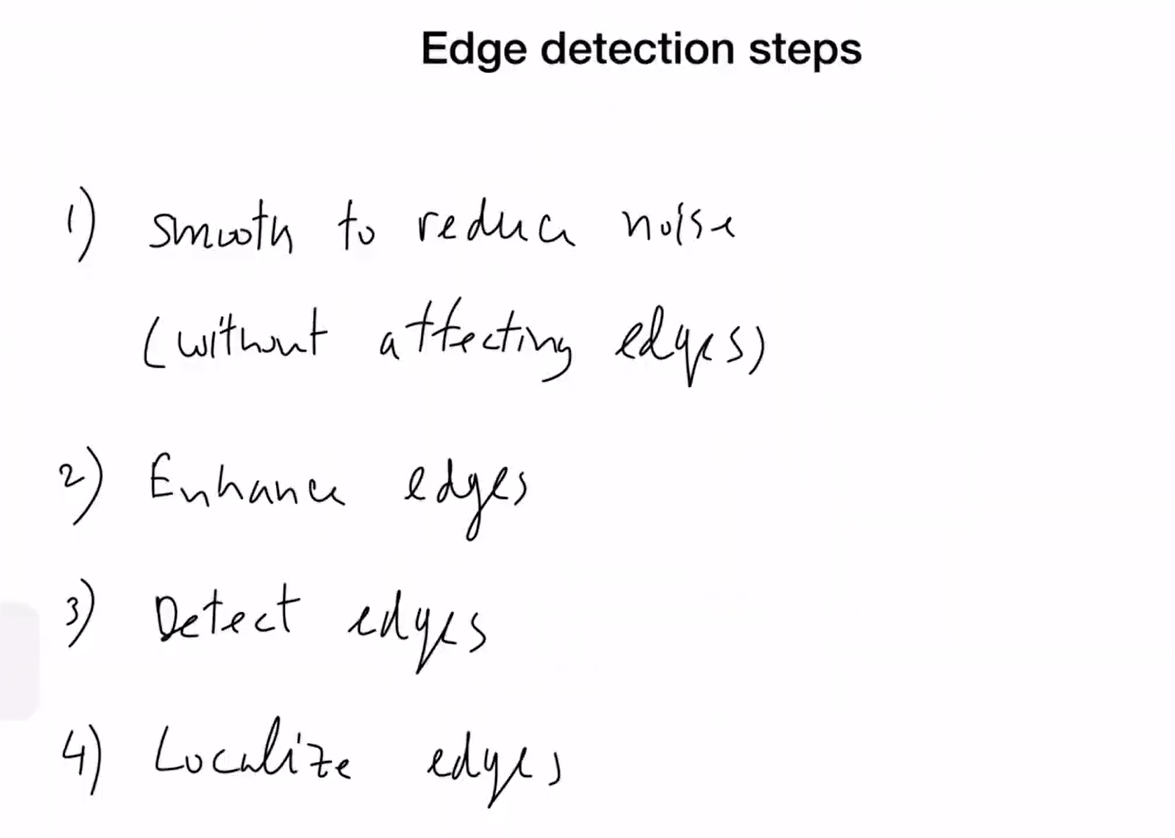 Edge detection steps
1) smooth to reduce noise
(without affecting edges)
2) Enhance edges
3) Detect edges
4) Localize edges